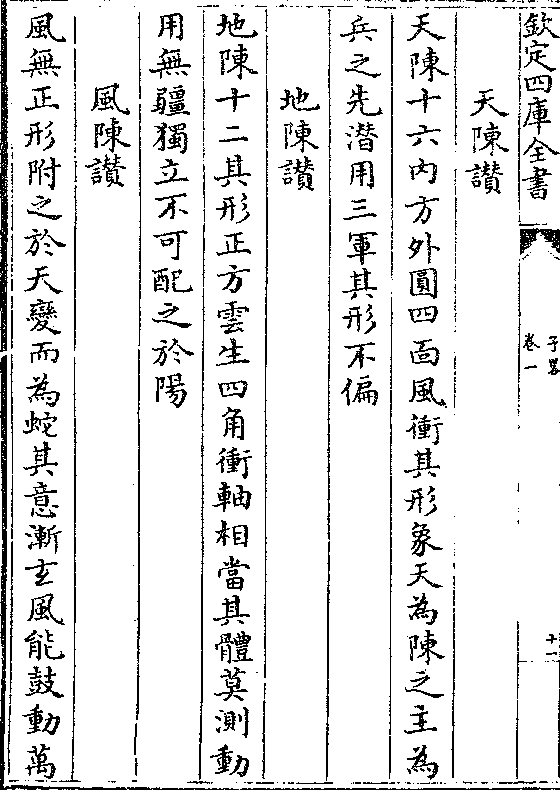 欽定四庫全書
子畧
卷一
十一
天陳讃
天陳十六内方外圓四面風衝其形象天為陳之主為
兵之先潜用三軍其形不偏
地陳讃
地陳十二其形正方雲生四角衝軸相當其體莫測動
用無疆獨立不可配之於陽
風陳讃
風無正形附之於天變而為蛇其意漸玄風能鼓動萬